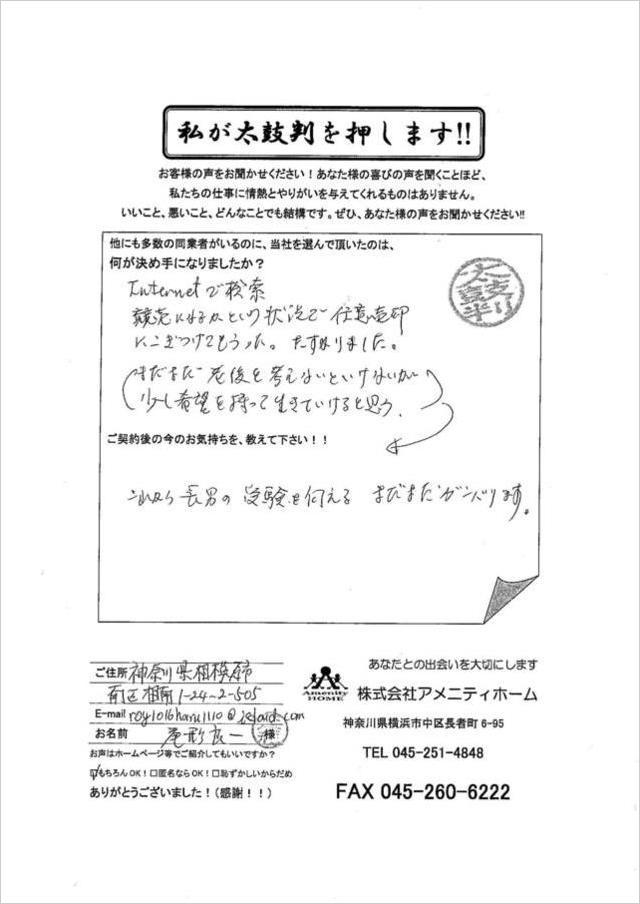 私が太鼓判を押します!!
お客様の声をお聞かせください！あなた様の喜びの声を聞くことほど、
私たちの仕事に情熱とやりがいを与えてくれるものはありません。
いいこと、悪いこと、どんなことでも結構です。ぜひ、あなた様の声をお聞かせください!!
他にも多数の同業者がいるのに、当社を選んで頂いたのは、
何が決め手になりましたか？
太鼓判
Internetで検索
競売になるかという状況で任意売却
にこぎつけてもらった。たすかりました。
(まだまだ老後を考えないといけないが
少し希望を持って生きていけると思う.)
ご契約後の今のお気持ちを、教えて下さい！！
これから長男の受験を伺える まだまだガンバります。
ご住所 神奈川県相模原市
南区相南1-24-2-505
E-mail
お名前 尾形良一 様
お声はホームページ等でご紹介してもいいですか？
☑もちろんOK！□匿名ならOK！□恥ずかしいからだめ
ありがとうございました！(感謝！！)
あなたとの出会いを大切にします
Amenity HOME
株式会社アメニティホーム
神奈川県横浜市中区長者町 6-95
TEL 045-251-4848
FAX 045-260-6222